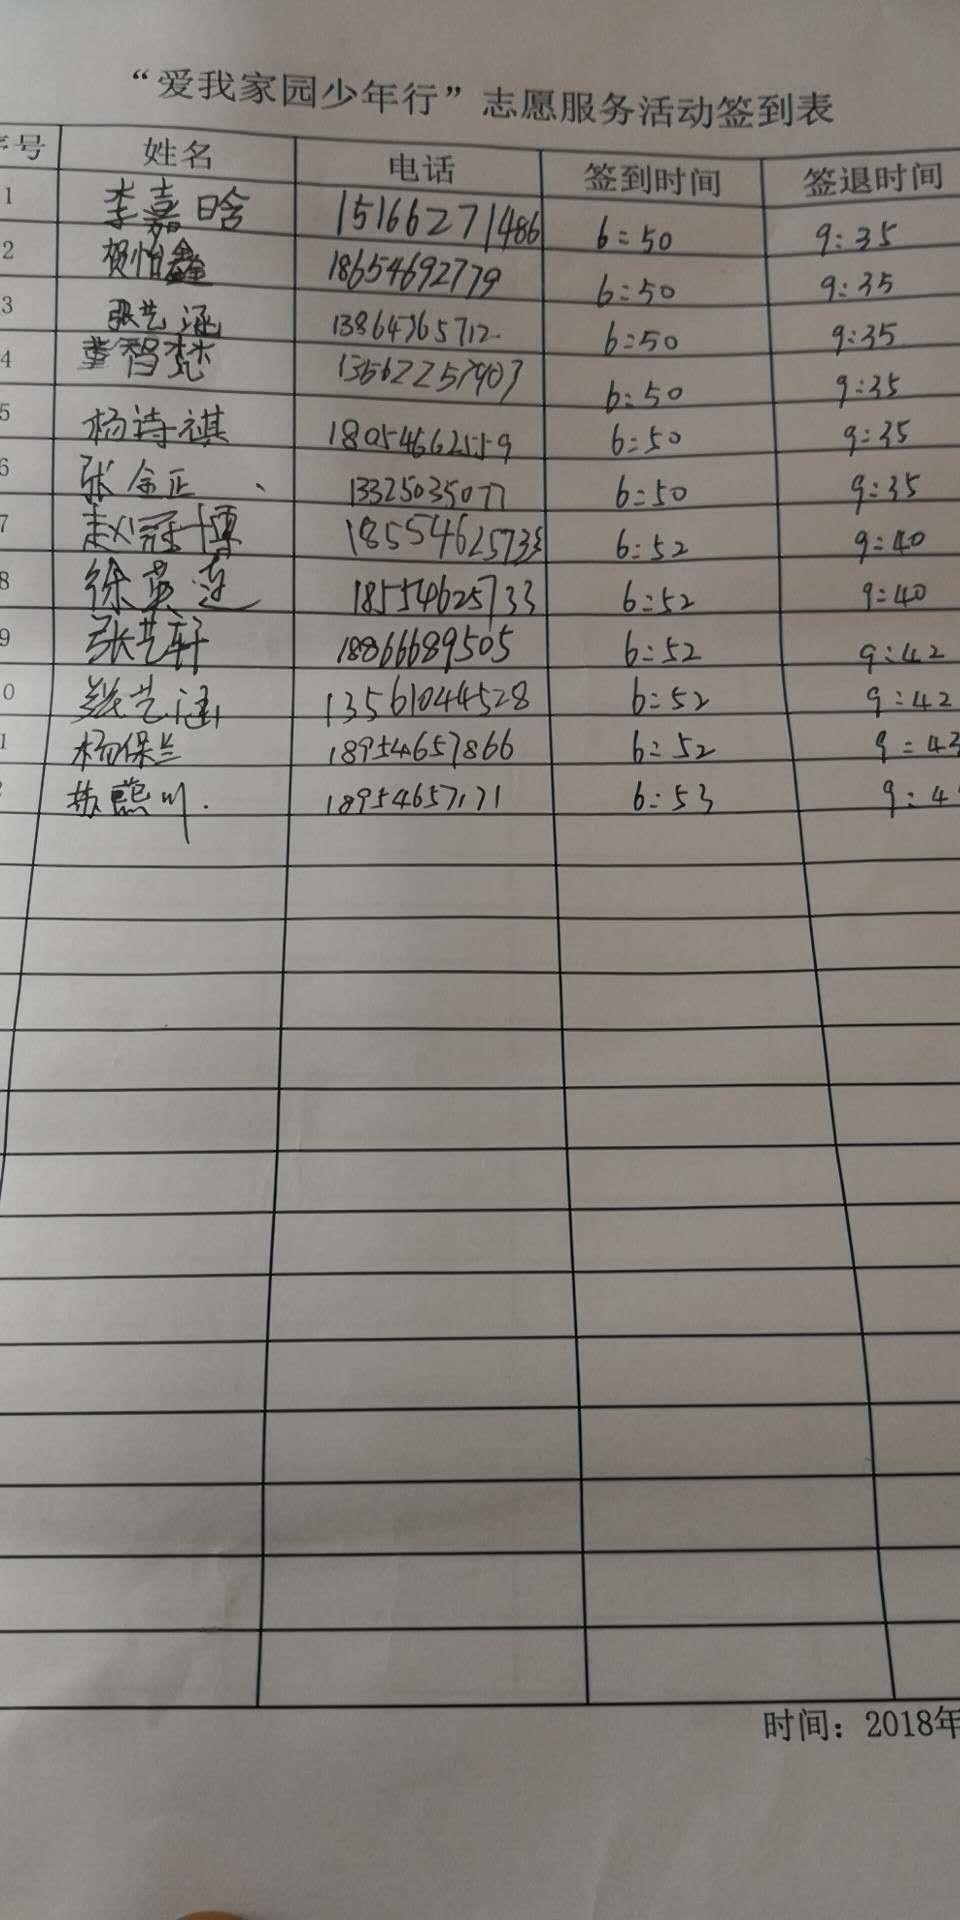 “爱我家园少年行”志愿服务活动签到表
号 姓名 电话 签到时间 签退时间
1 李嘉晗 15166271486 6:50 9:35
2 贺怡鑫 18654692779 6:50 9:35
3 张艺涵 13864765712 6:50 9:35
4 董智 6:50 9:35
5 杨诗祺 18054662559 6:50 9:35
6 张金正 13325035077 6:50 9:35
7 赵冠博 18554625733 6:52 9:40
8 徐英莲 18554625733 6:52 9:40
9 张艺轩 18866689505 6:52 9:42
0 张艺涵 13561044528 6:52 9:42
1 杨保兰 18954657866 6:52 9:43
川 18954657171 6:53 9:4
时间：2018年